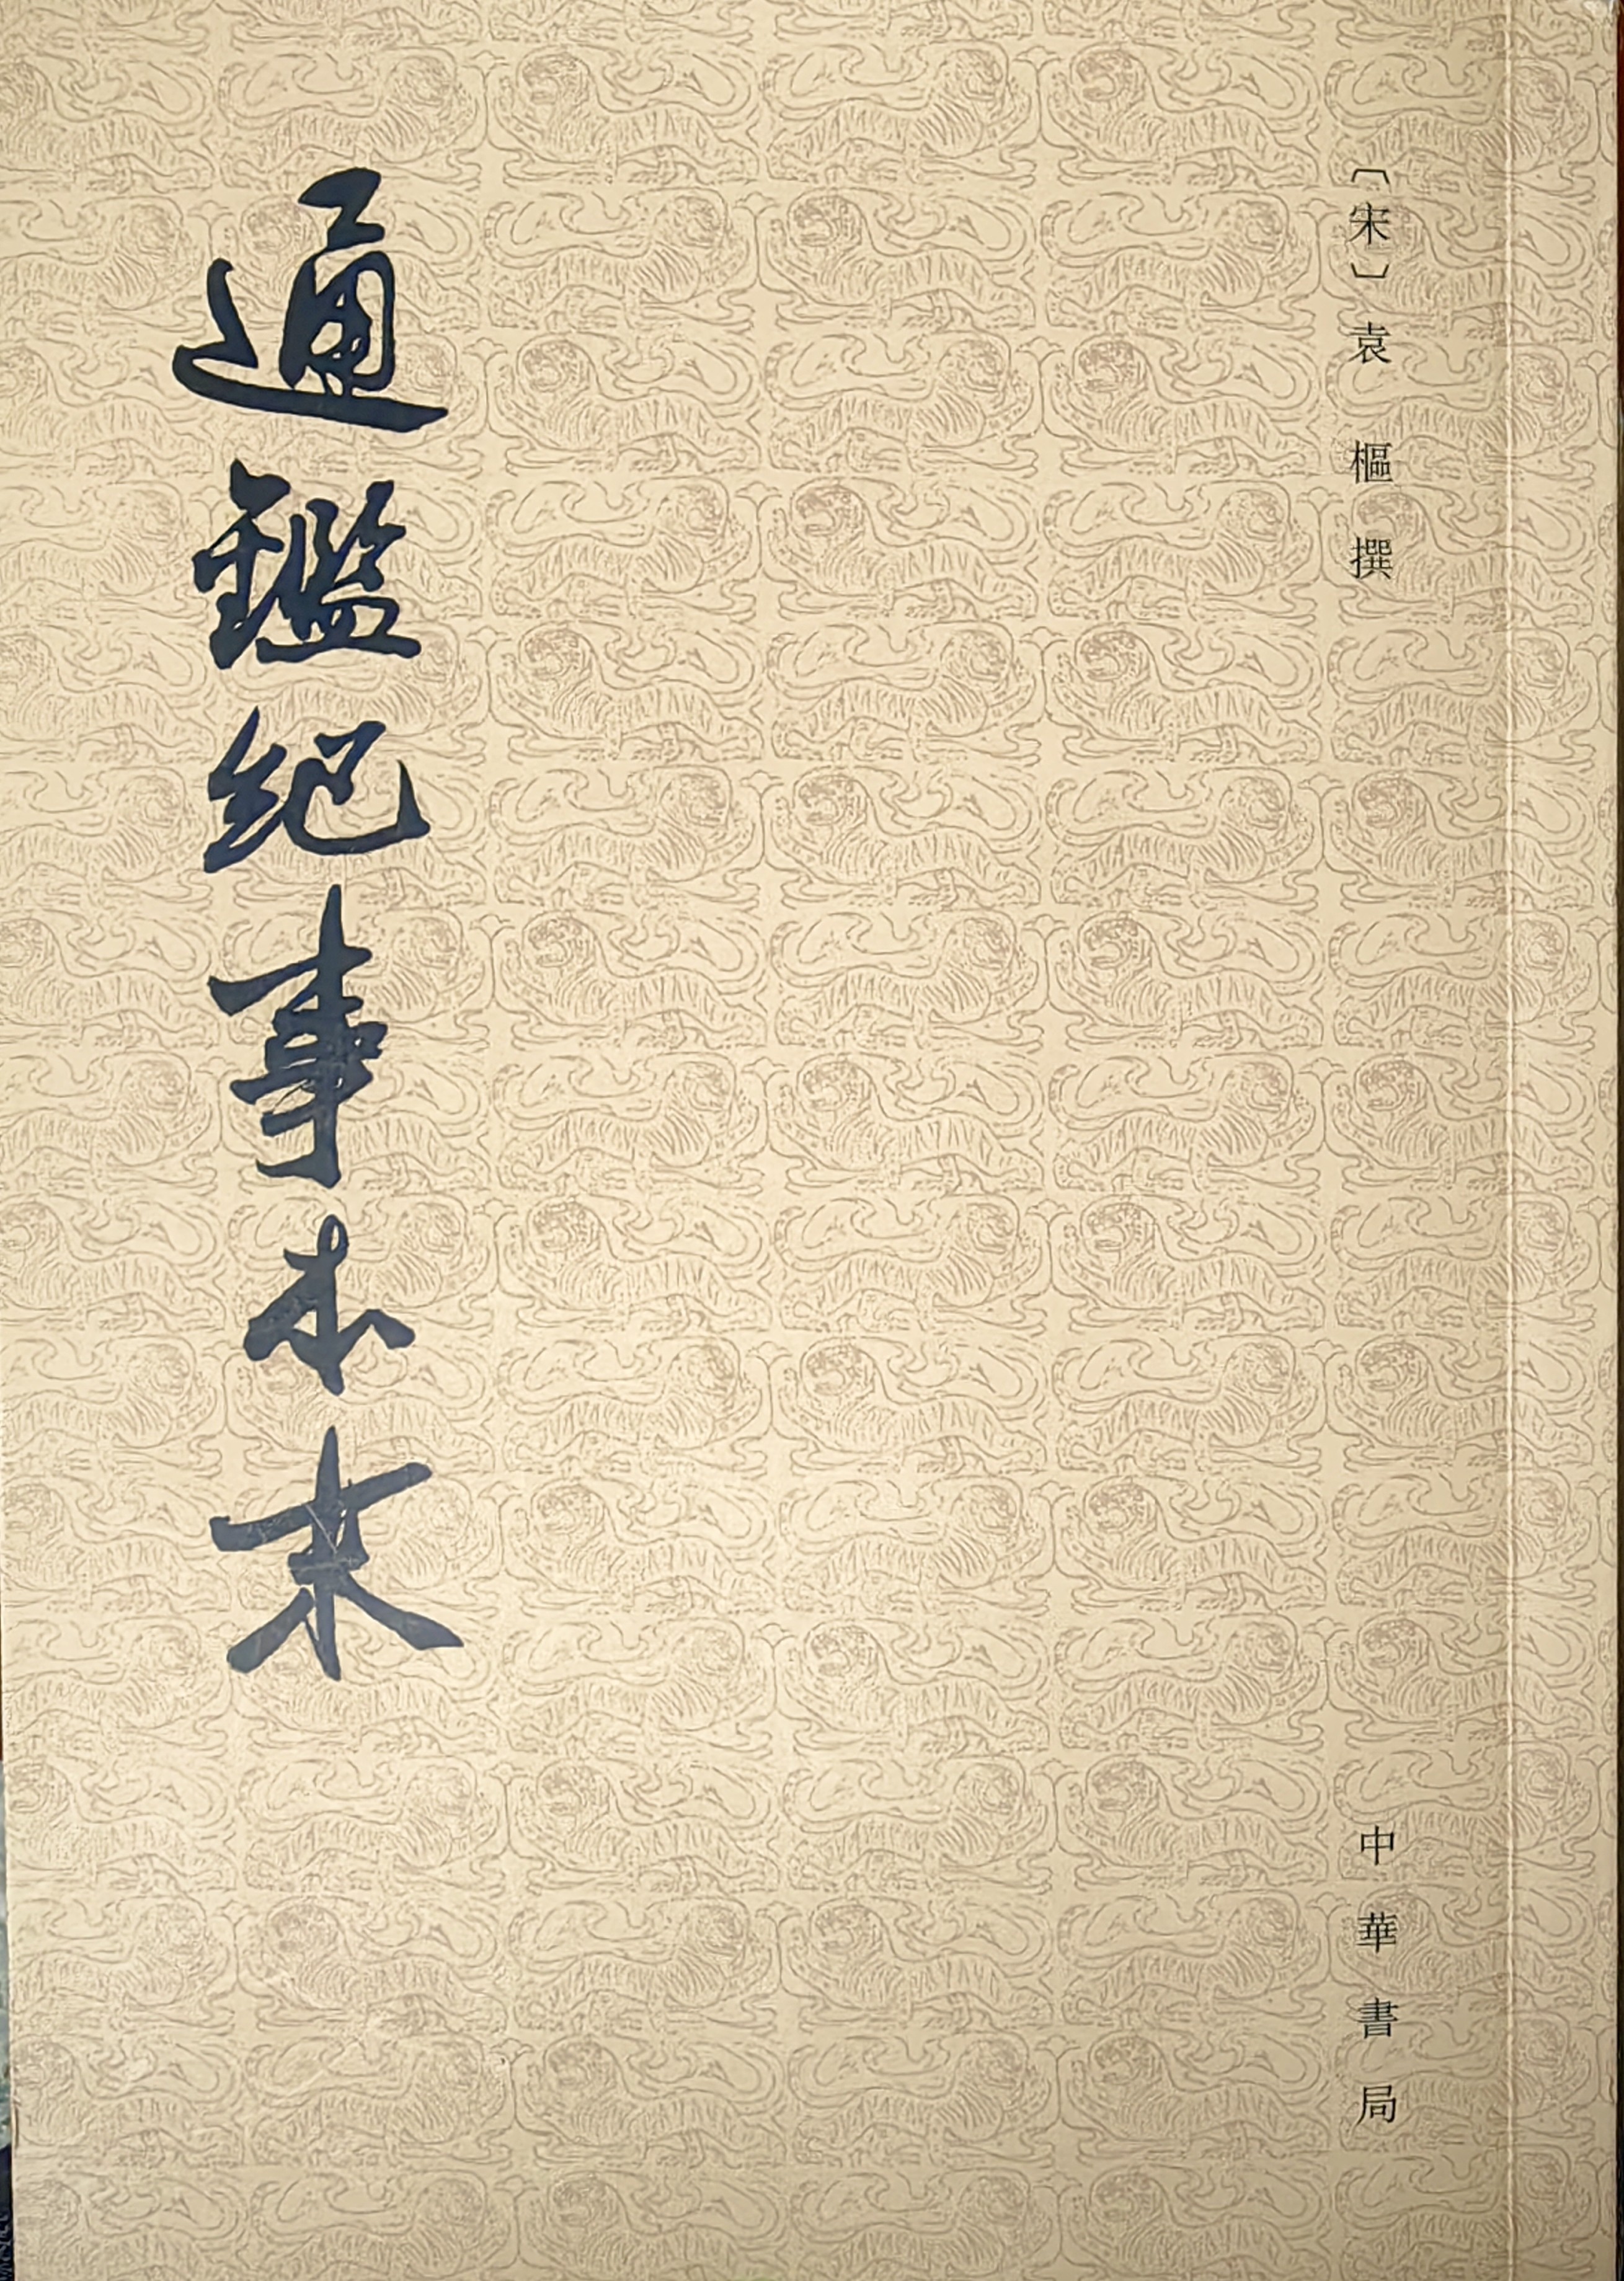 〔宋〕袁樞撰
中華書局
通鑑紀事本末